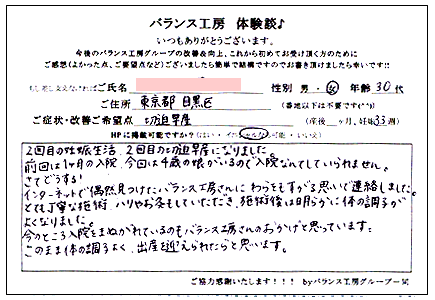 バランス工房 体験談♪
いつもありがとうございます。
今後のバランス工房グループの改善&向上、これから初めてお受け頂く方のために
ご感想(よかった点、ご要望点など)ございましたら簡単で結構ですのでお書き頂けましたら幸いです!!
もし差し支えなければご氏名 性別 男・女 年齢 30代
ご住所 東京都 目黒区 (番地以下は不要です(^^))
ご症状・改善ご希望点 切迫早産 (産後 ヶ月、妊娠33週)
HPに掲載可能ですか?(はい・イニシャルなら可能・いいえ)
2回目の妊娠生活、2回目の切迫早産になりました。
前回は1ヶ月の入院、今回は4歳の娘がいるので入院なんてしていられません。
さてどうする!
インターネットで偶然見つけたバランス工房さんに わらをもすがる思いで連絡しました。
とても丁寧な施術、ハリやお灸もしていただき、施術後は明らかに体の調子が
よくなりました。
今のところ入院をまぬがれているのもバランス工房さんのおかげと思っています。
このまま体の調子よく、出産を迎えられたらと思います。
ご協力感謝いたします!!! byバランス工房グループ一同